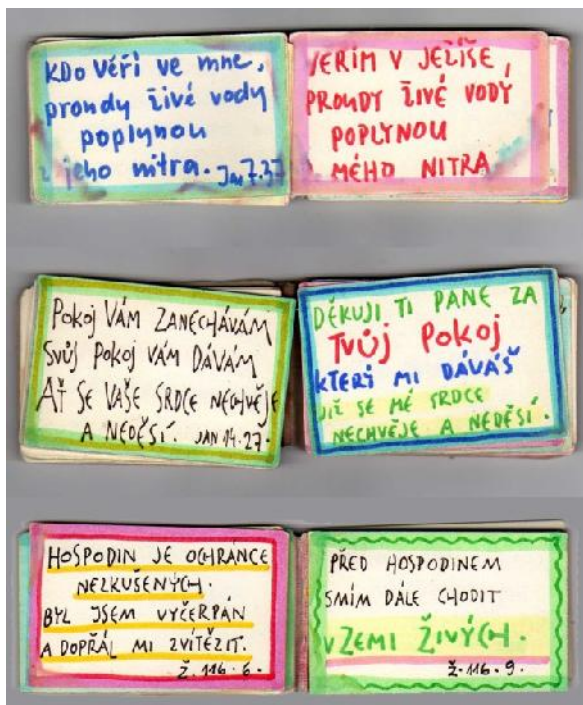 KDO VĚŘÍ VE MNE,
proudy živé vody
poplynou
z jeho nitra. Jan 7.37
VĚŘÍM V JEŽÍŠE,
PROUDY ŽIVÉ VODY
POPLYNOU
MÉHO NITRA
POKOJ VÁM ZANECHÁVÁM
SVŮJ POKOJ VÁM DÁVÁM
AŤ SE VAŠE SRDCE NECHVĚJE
A NEDĚSÍ. JAN 14.27.
DĚKUJI TI PANE ZA
TVŮJ POKOJ
KTERÝ MI DÁVÁŠ
JIŽ SE MÉ SRDCE
NECHVĚJE A NEDĚSÍ.
HOSPODIN JE OCHRÁNCE
NEZKUŠENÝCH.
BYL JSEM VYČERPÁN
A DOPŘÁL MI ZVÍTĚZIT.
Ž. 116.6.
PŘED HOSPODINEM
SMÍM DÁLE CHODIT
V ZEMI ŽIVÝCH.
Ž. 116.9.